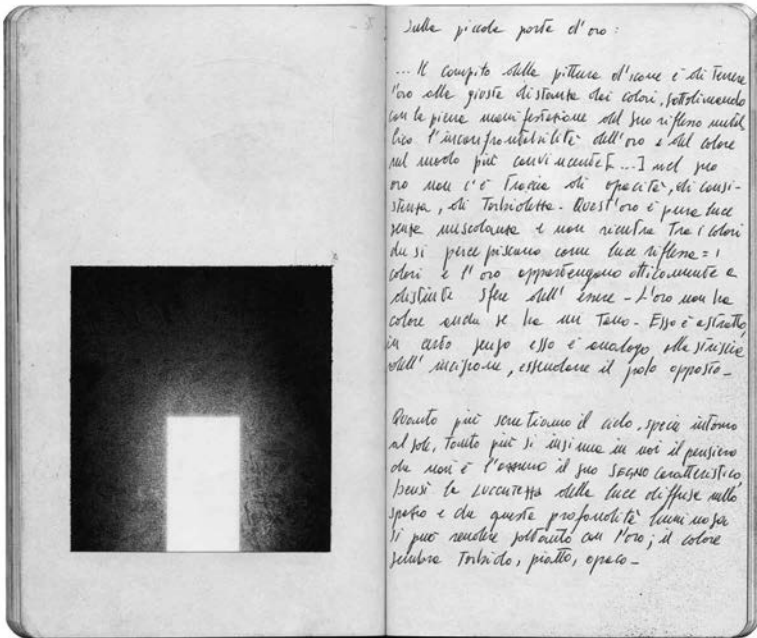 Sulla piccola porta d'oro:
... Il compito della pittura d'icone è di tenere
l'oro alla giusta distanza dai colori, sottolineando
con la piena manifestazione del suo riflesso metal
lico l'inconfrontabilità dell'oro e del colore
nel modo più convincente [...] nel suo
oro non c'è traccia di opacità, di consi-
stenza, di torbidezza - Quest'oro è pura luce
senza mescolanza e non rientra tra i colori
che si percepiscono come luce riflessa = i
colori e l'oro appartengono otticamente a
distinte sfere dell'essere - L'oro non ha
colore anche se ha un tono - Esso è astratto,
in certo senso esso è analogo alla striscia
dell'incisione, essendone il polo opposto -
Quanto più sentiamo il cielo, specie intorno
al sole, tanto più si insinua in noi il pensiero
che non è l'azzurro il suo SEGNO caratteristico,
bensì la LUCENTEZZA della luce diffusa nello
spazio e che questa profondità luminosa
si può rendere soltanto con l'oro; il colore
sembra torbido, piatto, opaco -